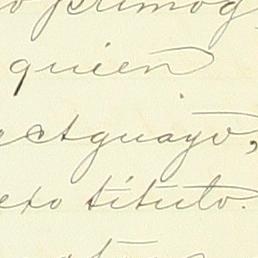 o primog
quien
actguayo,
exo título.